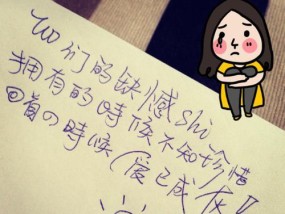 wo们的缺憾shi
拥有的時候不知珍惜
回首の時候(爱已成灰